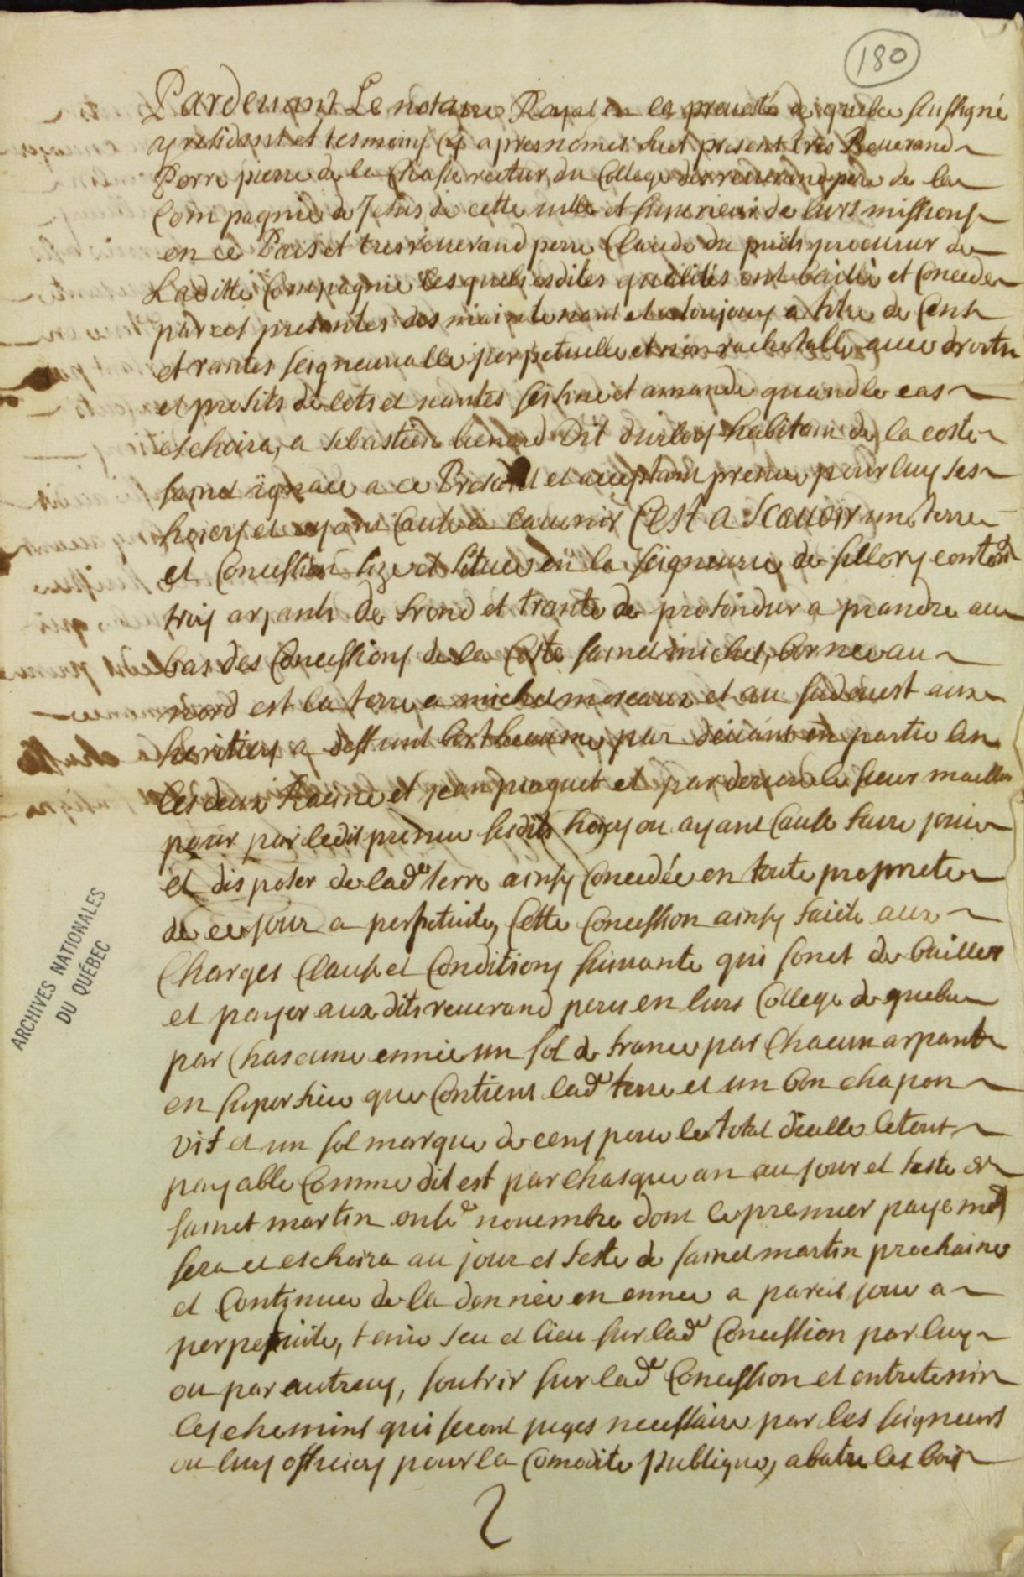 180
Pardevant Le notaire Royal en la prevosté de quebec soussigné
y residant et tesmoins cy apres només fut present tres Reverand
Perre pierre de la Chasse recteur du College des reverand pere de la
Compagnie de Jesus de cette ville et superieur de leurs missions
en ce Pais et tres reverand perre Claude du puids procureur de
Laditte Compagnie lesquels esdites qualités ont baillé et Conceder
par ces presantes des maintenant et atoujours a titre de Cens
et rantes seigneurialle perpetuelle et non rachetable avec droits
et profits de lots et vantes saisine et amande quand le cas
eschoira, a sebastien bienard Dit durbois habitant de la coste
sainct ignace a ce Present et acceptant preneur pour luy ses
hoiers et ayant Cause a lavenir C'EST A SCAVOIR une terre
et Concession size et situee en la seigneurie de sillery content
trois arpants de frond et trante de profondeur a prandre au
bas des Concessions de la Coste sainct michel, borne au
nord est la terre a michel moreaux et au sudouest aux
heritiers a deffunt bertheaume par devant en partie les
les deux haime et jean paquet et par deriere le sieur maillou
pour par ledit preneur sesdits hoiers ou ayant Cause faire jouir
et disposer de lade terre ainsy Concedée en toute propriete
de ce jour a perpetuite, Cette Concession ainsy faicte aux
Charges Clause et Conditions suivante qui sonct de bailler
et payer aux dits reverand peres en leurs College de quebec
par Chascune ennée un sol de france par Chacun arpants
en superficie que Contient lade terre et un bon chapon
vif et un sol marque de cens pour le total dicelle le tout
payable Comme dit est par chasque an au jour et feste de
sainct martin onze novembre dont le premier payement
sera et eschoira au jour et feste de sainct martin prochaine
et Continuer de la dannée en ennee a pareil jour a
perpetuite, tenir feu et lieu sur lade Concession par luy
ou par autruy, soufrir sur lade Concession et entretenir
les chemins qui seront juges necessaire par les seigneurs
ou leurs officiers pour la Comodite Publique, abatre les bois
2
ARCHIVES NATIONALES
DU QUÉBEC